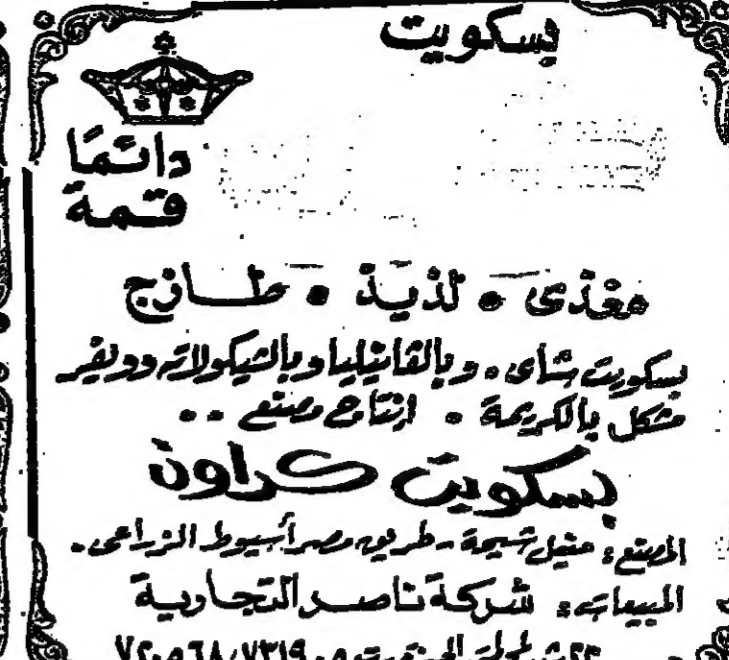 بسكويت
دائمًا
قمة
مغذى • لذيذ • طازج
بسكويت شاى • وبالڤانيليا وبالشيكولاته وويفر
مشكل بالكريمة • إنتاج مصنع ..
بسكويت كراون
المصنع : منيل شيحة - طريق مصر أسيوط الزراعى -
المبيعات : شركة ناصر التجارية